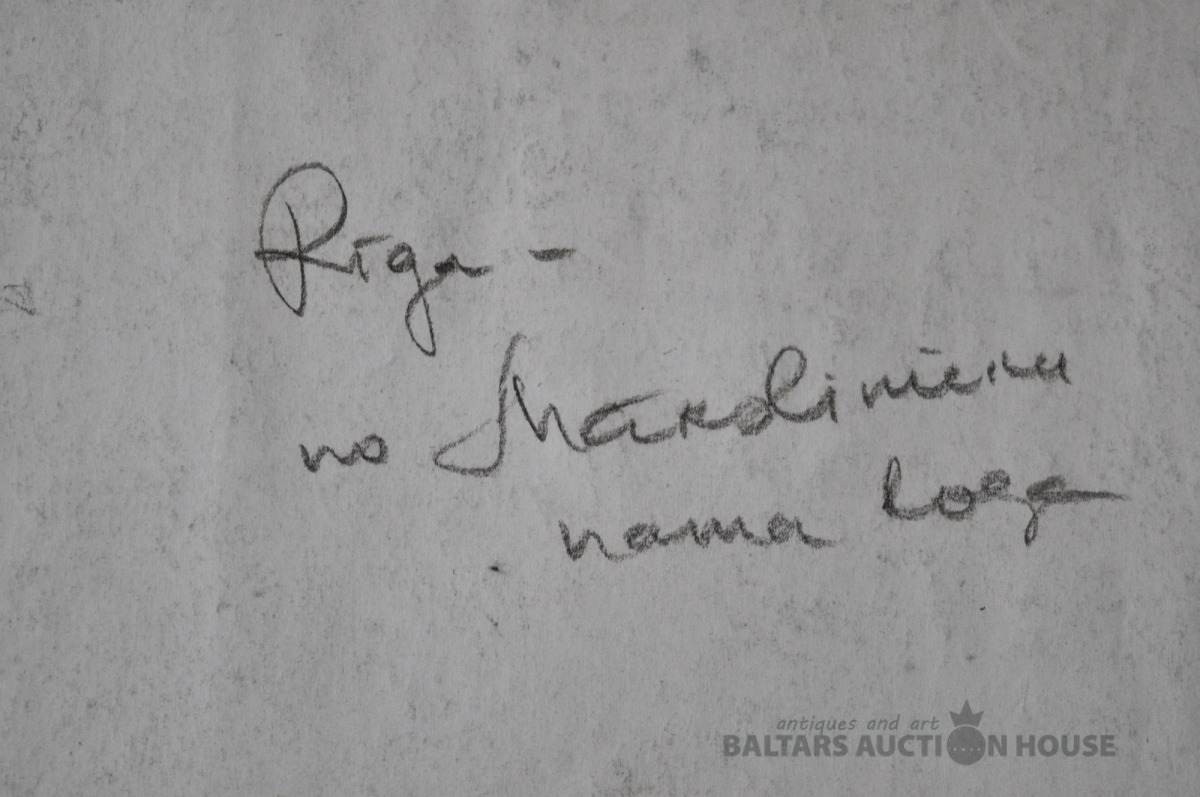 Rīga -
no Mākslinieku
nama loga
antiques and art
BALTARS AUCTION HOUSE